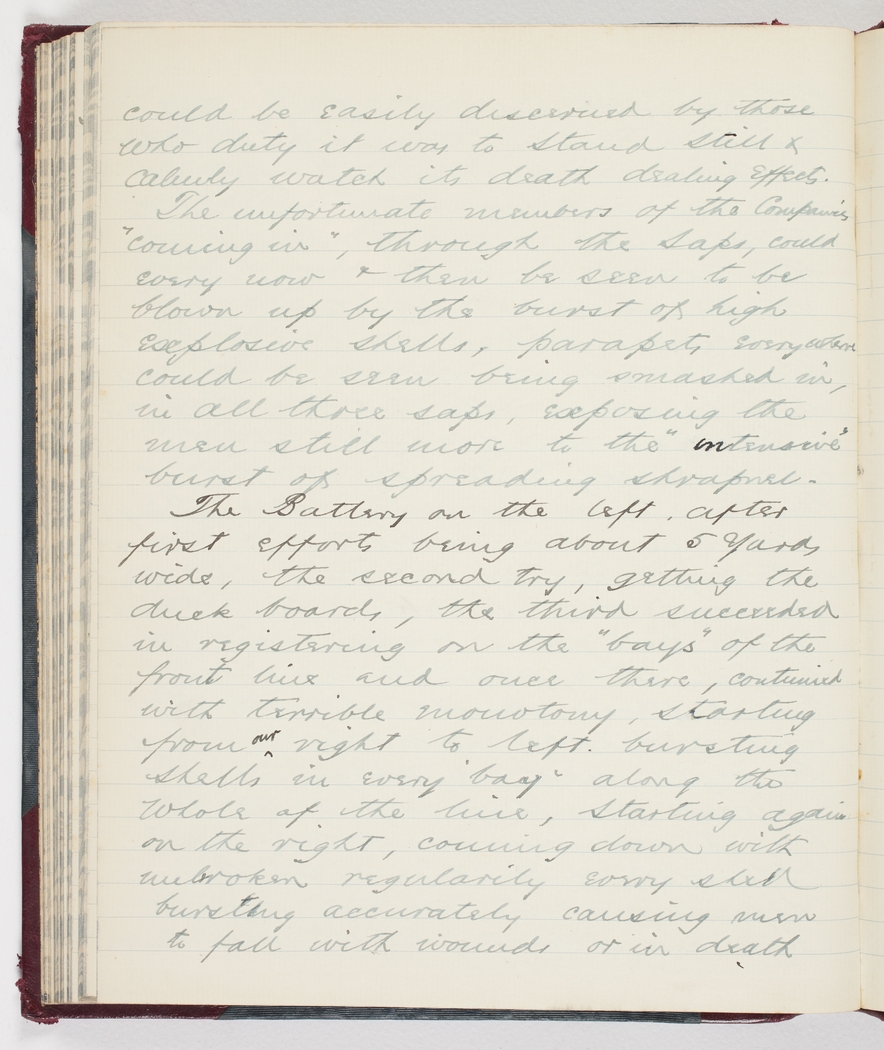 could be easily discerned by those
who duty it was to stand still &
calmly watch its death dealing effects.
The unfortunate members of the Companies
"coming in", through the saps, could
every now & then be seen to be
blown up by the burst of high
explosive shells, parapets everywhere
could be seen being smashed in,
in all three saps, exposing the
men still more to the "intensive"
burst of spreading shrapnel.
The Battery on the left, after
first efforts being about 5 yards
wide, the second try, getting the
duck boards, the third succeeded
in registering on the "bays" of the
front line and once there, continued
with terrible monotony, starting
from our right to left. bursting
shells in every "bay" along the
whole of the line, starting again
on the right, coming down with
unbroken regularity every shell
bursting accurately causing men
to fall with wounds or in death